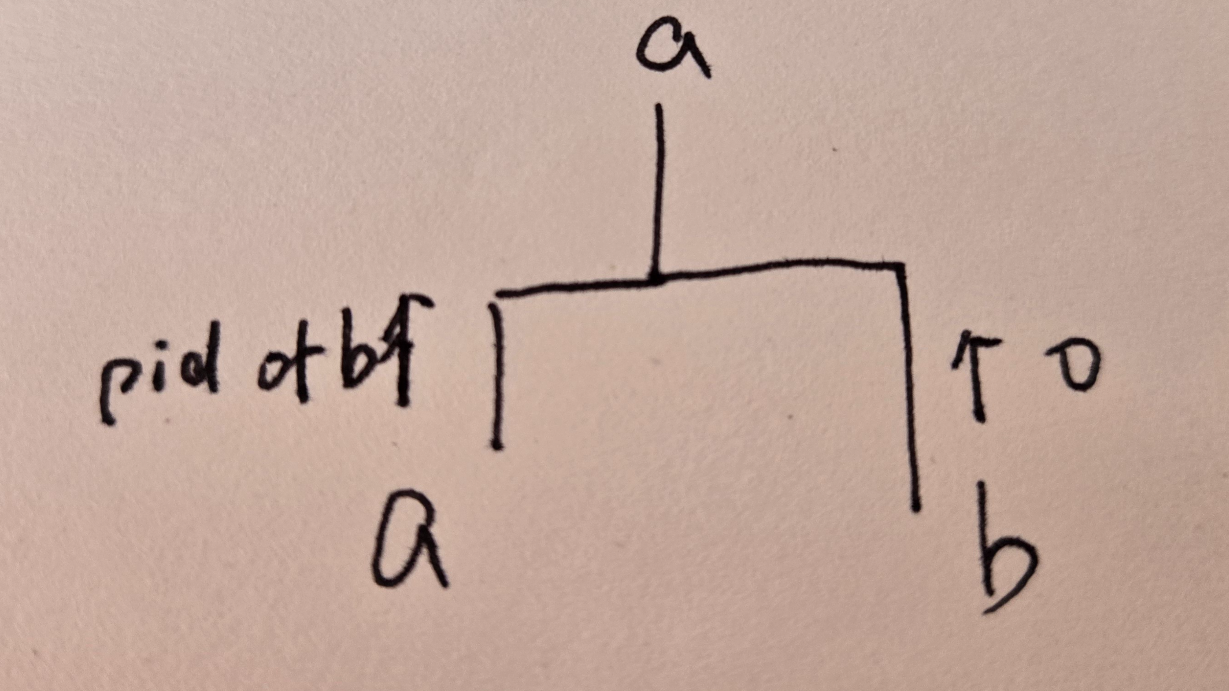 a
pid of b↑
↑ 0
a
b